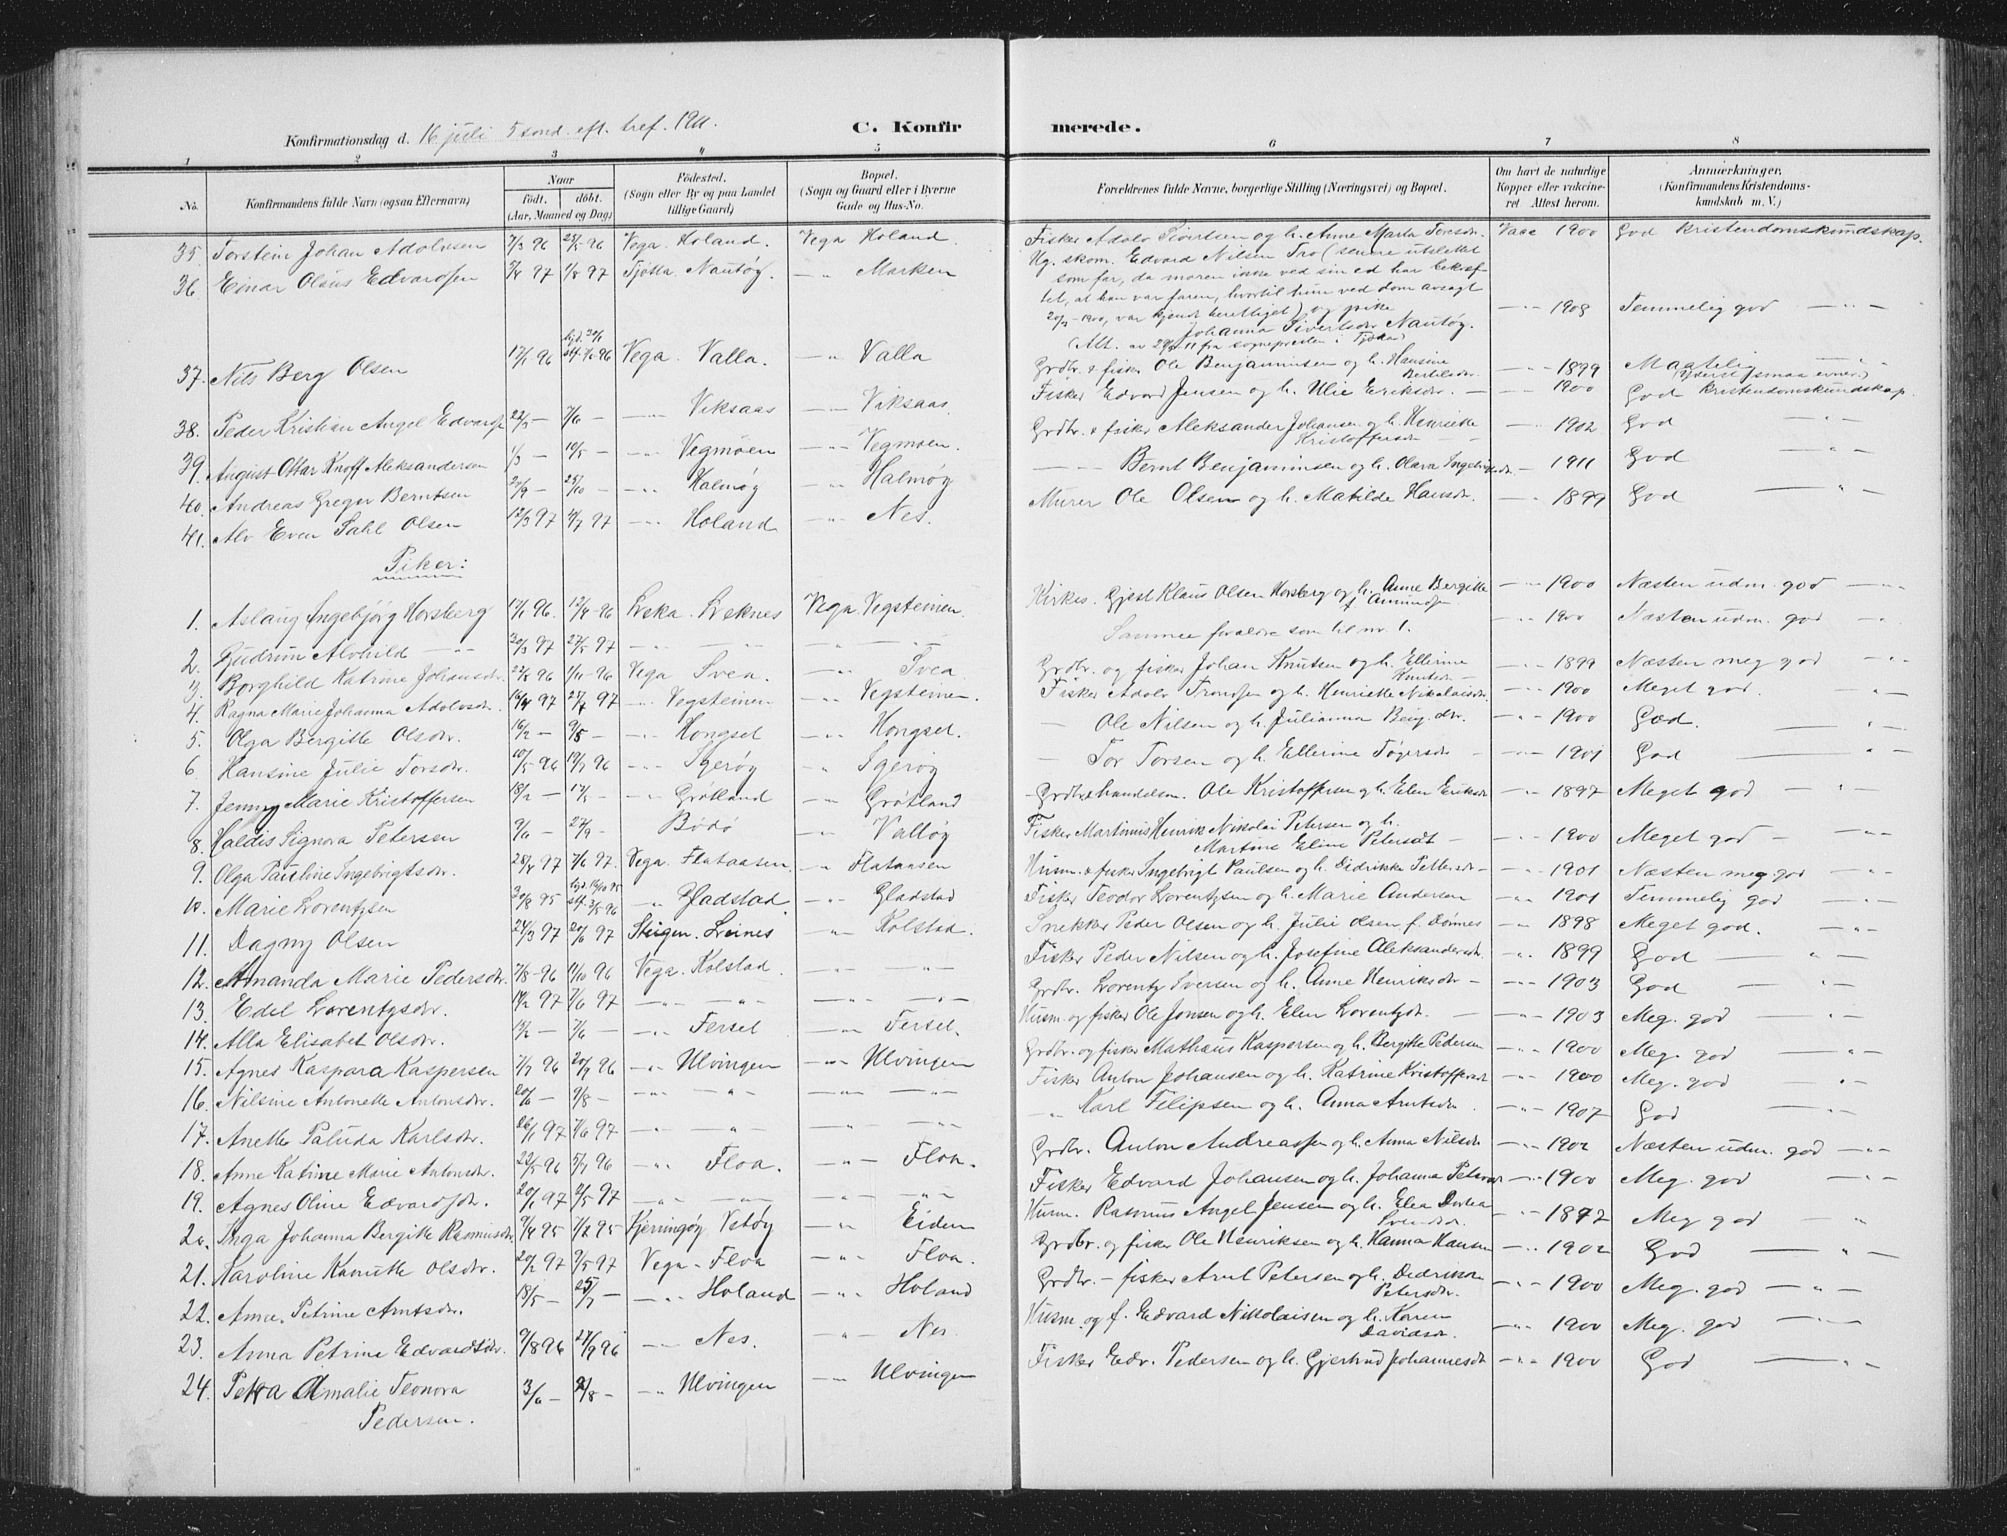 Konfirmationsdag d. 16 juli 5 sond. eft. tref. 1911.
C. Konfirmerede.
1 2 3 4 5 6 7 8
No. Konfirmandens fulde Navn (ogsaa Efternavn) Naar født. døbt. (Aar, Maaned og Dag) Födested. (Sogn eller By og paa Landet tillige Gaard) Bopæl. (Sogn og Gaard eller i Byerne Gade og Hus-No. Forældrenes fulde Navne, borgerlige Stilling (Næringsvei) og Bopæl. Om havt de naturlige Kopper eller vaccineret. Attest herom. Anmærkninger. (Konfirmandens Kristendomskundskab m. V.)
35 Torstein Johan Adolvsen 7/3 96 25/5-96 Vega. Holand. Vega Holand. Fisker Adolv Sivertsen og h. Anne Marta Torsdr. Vacc 1900 God kristendomskundskap.
36. Einar Olaus Edvardsen 97 97 Tjötta. Nautöy. -"- Marken Ug. skom. Edvard Nilsen Tro (senere utslettet
som far, da moren ved sin ed har bekræf-
tet, at han var faren, hvortil hun ved dom avsagt
1900, var kjendt berettiget) og pike
Johanna Sivertsdr Nautöy. -"- 1908 Temmelig god -"-
fra sognepresten i Tjötta)
37. Nils Berg Olsen 17/1 96 Vega. Valla. -"- Valla Grdbr. & fisker Ole Benjaminsen og h. Hansine Bertilsdr. -"- 1899 Maatelig (smaa evner) -"-
38. Peder Kristian Angel Edvards. 22/3 - 7/6 - -"- Viksaas -"- Viksaas. Fisker Edvard Jensen og h. Ulie Eriksdr. -"- 1900 God kristendomskundskap.
39. August Ottar Knoff Aleksandersen 1/3 - 10/5 - -"- Vegmoen -"- Vegmoen. Grdbr. & fisker Aleksander Johansen og h. Henrikke Kristoffersdr -"- 1902 God -"-
40. Andreas Greger Berntsen 27/9 - 25/10 - -"- Halmöy -"- Halmöy -"- Bernt Benjaminsen og h. Olava Ingebrigtsdr - 1911 God -"-
41. Alv Even Dahl Olsen 12/3 97 4/7 97 -"- Holand -"- Nes. Murer Ole Olsen og h. Matilde Hansdr. -"- 1899 God -"-
Piker:
1. Aslaug Ingebjörg Horsberg 17/1 96. 12/4-96 Leka. Leknes Vega. Vegsteinen. Kirkes. Gjest Klaus Olsen Horsberg og h. Anne Bergitte f. Amundsen. -"- 1900 Næsten udm. god -"-
2. Gudrun Alvhild -"- 20/3 97 27/5 97 -"- -"- -"- -"- Samme forældre som til nr. 1. -"- 1900 Næsten udm. god -"-
3. Borghild Katrine Johansdr. 22/8 96 1/11-96 Vega Svea. -"- Svea Grdbr. og fisker Johan Knutsen og h. Ellerine Knutsdr -"- 1899 Næsten meg god -"-
4. Ragna Marie Johanna Adolvsdr. 97 97 -"- Vegsteinen -"- Vegsteinen. Fisker Adolv Tronsen og h. Henriette Nikolaisdr. -"- 1900 Meget god. -"-
5. Olga Bergitte Olsdr. 16/2 - 9/5 - -"- Hongset -"- Hongset. - Ole Nilsen og h. Julianna Benj.dr. -"- 1900 God. -"-
6. Hansine Julie Torsdr. 10/5 96 19/7 96 -"- Igeröy -"- Igeröy - Tor Torsen og h. Ellerine Tögersdr -"- 1901 God -"-
7. Jenny Marie Kristoffersen 18/2 - 17/5 - -"- Grötland -"- Grötland Grdbr & handelsm. Ole Kristoffersen og h. Elen Eriksdr -"- 1897 Meget god -"-
8. Haldis Signora Petersen 9/6 - 27/9 - Bödö -"- Valtöy Fisker Martinus Henrik Nikolai Petersen og h. Martine Eline Petersdt -"- 1900 Meget god -"-
9. Olga Pauline Ingebrigtsdr. 28/4 97 7/6 97. Vega. Flataasen. -"- Flataasen Husm. & fisker Ingebrigt Paulsen og h. Didrikke Pettersdr -"- 1901 Næsten meg god -"-
10. Marie Lorentzen 30/8 95 hjd. 13/10 95 stf. 3/5 96 -"- Gladstad. -"- Gladstad Fisker Teodor Lorentzen og h. Marie Andersen -"- 1901 Temmelig god -"-
11. Dagny Olsen 24/3 97 20/6 97 Steigen. Leines -"- Kolstad. Snekker Peder Olsen og h. Julie Olsen f. Dönnes -"- 1898 Meget god. -"-
12. Amanda Marie Pedersdr. 7/8-96 11/10 96 Vega. Kolstad -"- -"- Fisker Peder Nilsen og h. Josefine Aleksandersdr. -"- 1899 God -"-
13. Edel Lorentzsdr. 14/2 97 7/6 97 -"- -"- -"- -"- Grdbr. Lorentz Iversen og h. Anne Henriksdr -"- 1903 God -"-
14. Alla Elisabet Olsdr. 13/2 - 7/6 - -"- Ferset -"- Ferset. Husm. og fisker Ole Jonsen og h. Elen Lorentzdr. -"- 1903 Meg. god -"-
15. Agnes Kaspara Kaspersen 1/7 96 20/9 96 -"- Ulvingen -"- Ulvingen Grdbr. og fisker Mathæus Kaspersen og h. Bergitte Pedersen -"- 1900 Meg. god -"-
16. Nilsine Antonette Antonsdr. 20/6 - 9/8 - -"- -"- -"- -"- Fisker Anton Johansen og h. Katrine Kristoffersdr -"- 1900 Meg. god -"-
17. Anette Paluda Karlsdr. 26/1 97 7/6 97 -"- -"- -"- -"- -"- Karl Filipsen og h. Anna Arntsdr. -"- 1907 God -"-
18. Anne Katrine Marie Antonsdr. 22/5 96 5/7 96 -"- Floa. -"- Floa. Grdbr. Anton Andreassen og h. Anna Nilsdr -"- 1902 Næsten udm. god -"-
19. Agnes Oline Edvardsdr. 20/1 97 2/5 97 -"- -"- -"- -"- Fisker Edvard Johansen og h. Johanna Petersdr -"- 1900 Meg. god -"-
20. Inga Johanna Bergitte Rasmusdr 9/4 95 95 Kjerringöy Vetöy -"- Eidem Husm. Rasmus Angel Jensen og h. Elea Dortea Svendsdr. -"- 1897 Meg god -"-
21. Karoline Kanutte Olsdr. 20/2 97 9/5 97 Vega - Floa -"- Floa. Grdbr. og fisker Ole Henriksen og h. Hanna Hansen -"- 1902 God -"-
22. Anna Petrine Arntsdr. 18/5 - 25/7 - -"- Holand -"- Holand Grdbr. - fisker Arnt Petersen og h. Didrikke Petersdr. -"- 1900 Meg. god -"-
23. Anna Petrine Edvardsdr. 9/8 96 27/9 96 -"- Nes. -"- Nes. Husm. og f. Edvard Nikolaisen og h. Karen Davidsdr. -"- 1900 Meg. god -"-
24. Petra Amalie Teonora Pedersen. 3/6 - 2/8 - -"- Ulvingen -"- Ulvingen Fisker Edv. Pedersen og h. Gjertrud Johannesdr -"- 1900 God -"-